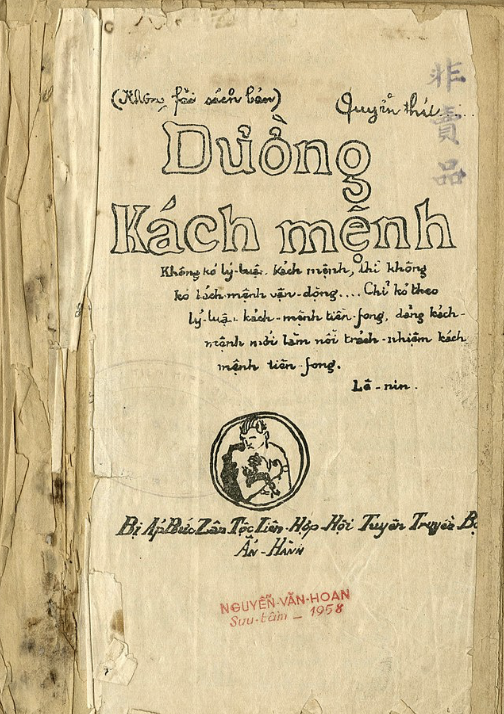 (Không fải sách bán)
Quyển thứ
非賣品
Đường
Kách mệnh
Không kó lý-luận kách mệnh, thì không
kó kách mệnh vận-động.... Chỉ kó theo
lý-luận kách-mệnh tiên-fong, đảng kách-
mệnh mới làm nổi trách-nhiệm kách
mệnh tiên-fong.
Lê-nin.
Bị Áp Bức Zân Tộc Liên-Hợp Hội Tuyên Truyền Bộ
Ấn-Hành
NGUYỄN-VĂN-HOAN
Sưu-tầm – 1958